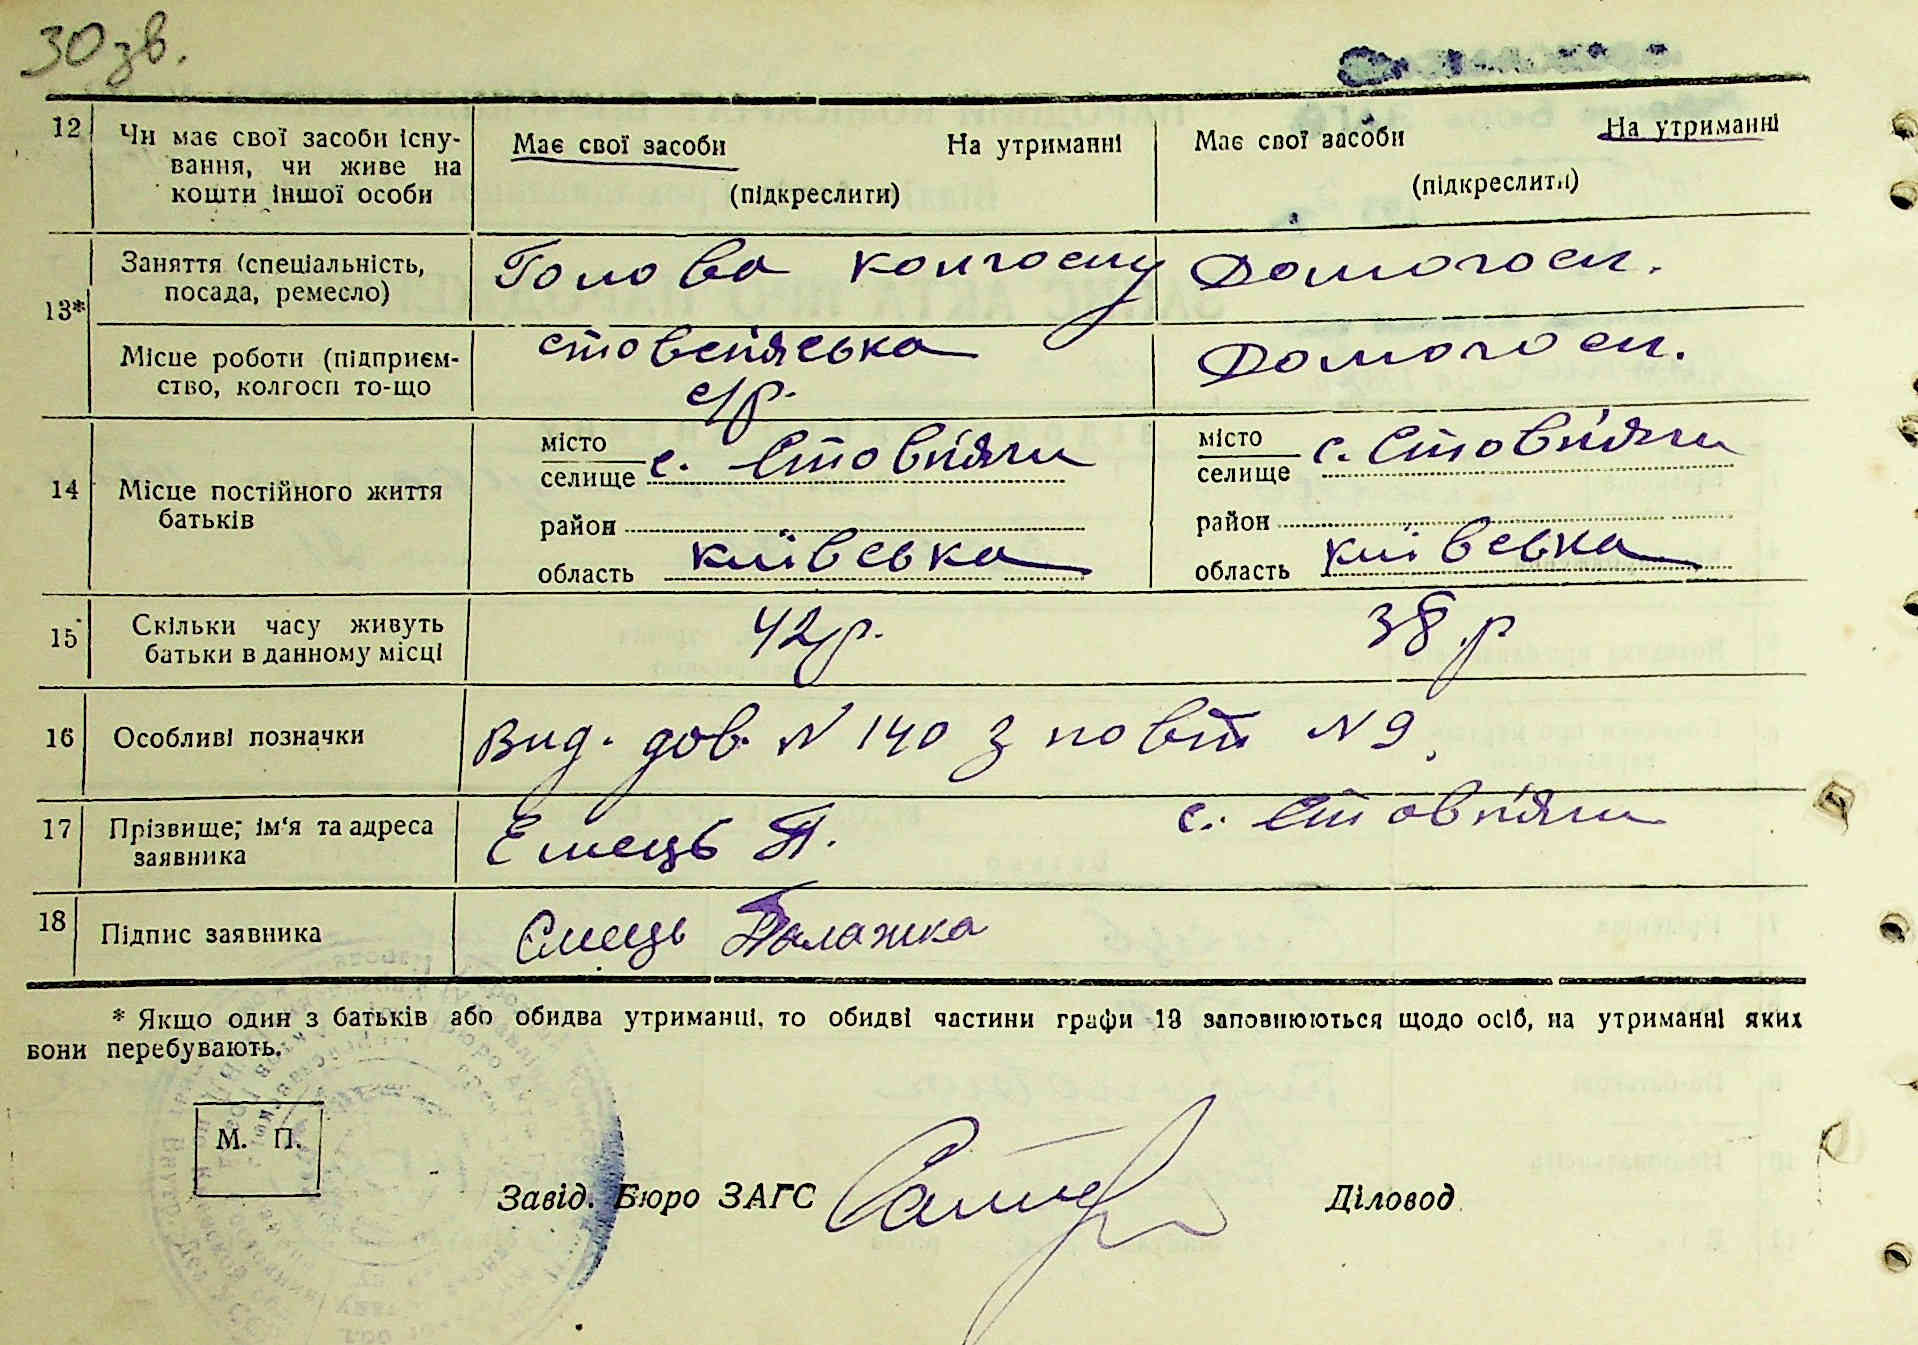 30 зв.
12 Чи має свої засоби існу- Має свої засоби На утриманні Має свої засоби На утриманні
вання, чи живе на
кошти іншої особи (підкреслити) (підкреслити)
13* Заняття (спеціальність, Голова колгоспу Домогосп.
посада, ремесло)
Місце роботи (підприєм- Стовп'яська Домогосп.
ство, колгосп то-що с/р.
14 Місце постійного життя місто с. Стовп'яги місто с. Стовп'яги
батьків селище селище
район район
область київська область київська
15 Скільки часу живуть 42 р. 38 р
батьки в данному місці
16 Особливі позначки Вид. дов. N 140 з повт N 9.
17 Прізвище; ім'я та адреса Ємець П. с. Стовп'яги
заявника
18 Підпис заявника Ємець Палажка
* Якщо один з батьків або обидва утриманці, то обидві частини графи 13 заповнюються щодо осіб, на утриманні яких
вони перебувають.
М. П.
Завід. Бюро ЗАГС Діловод